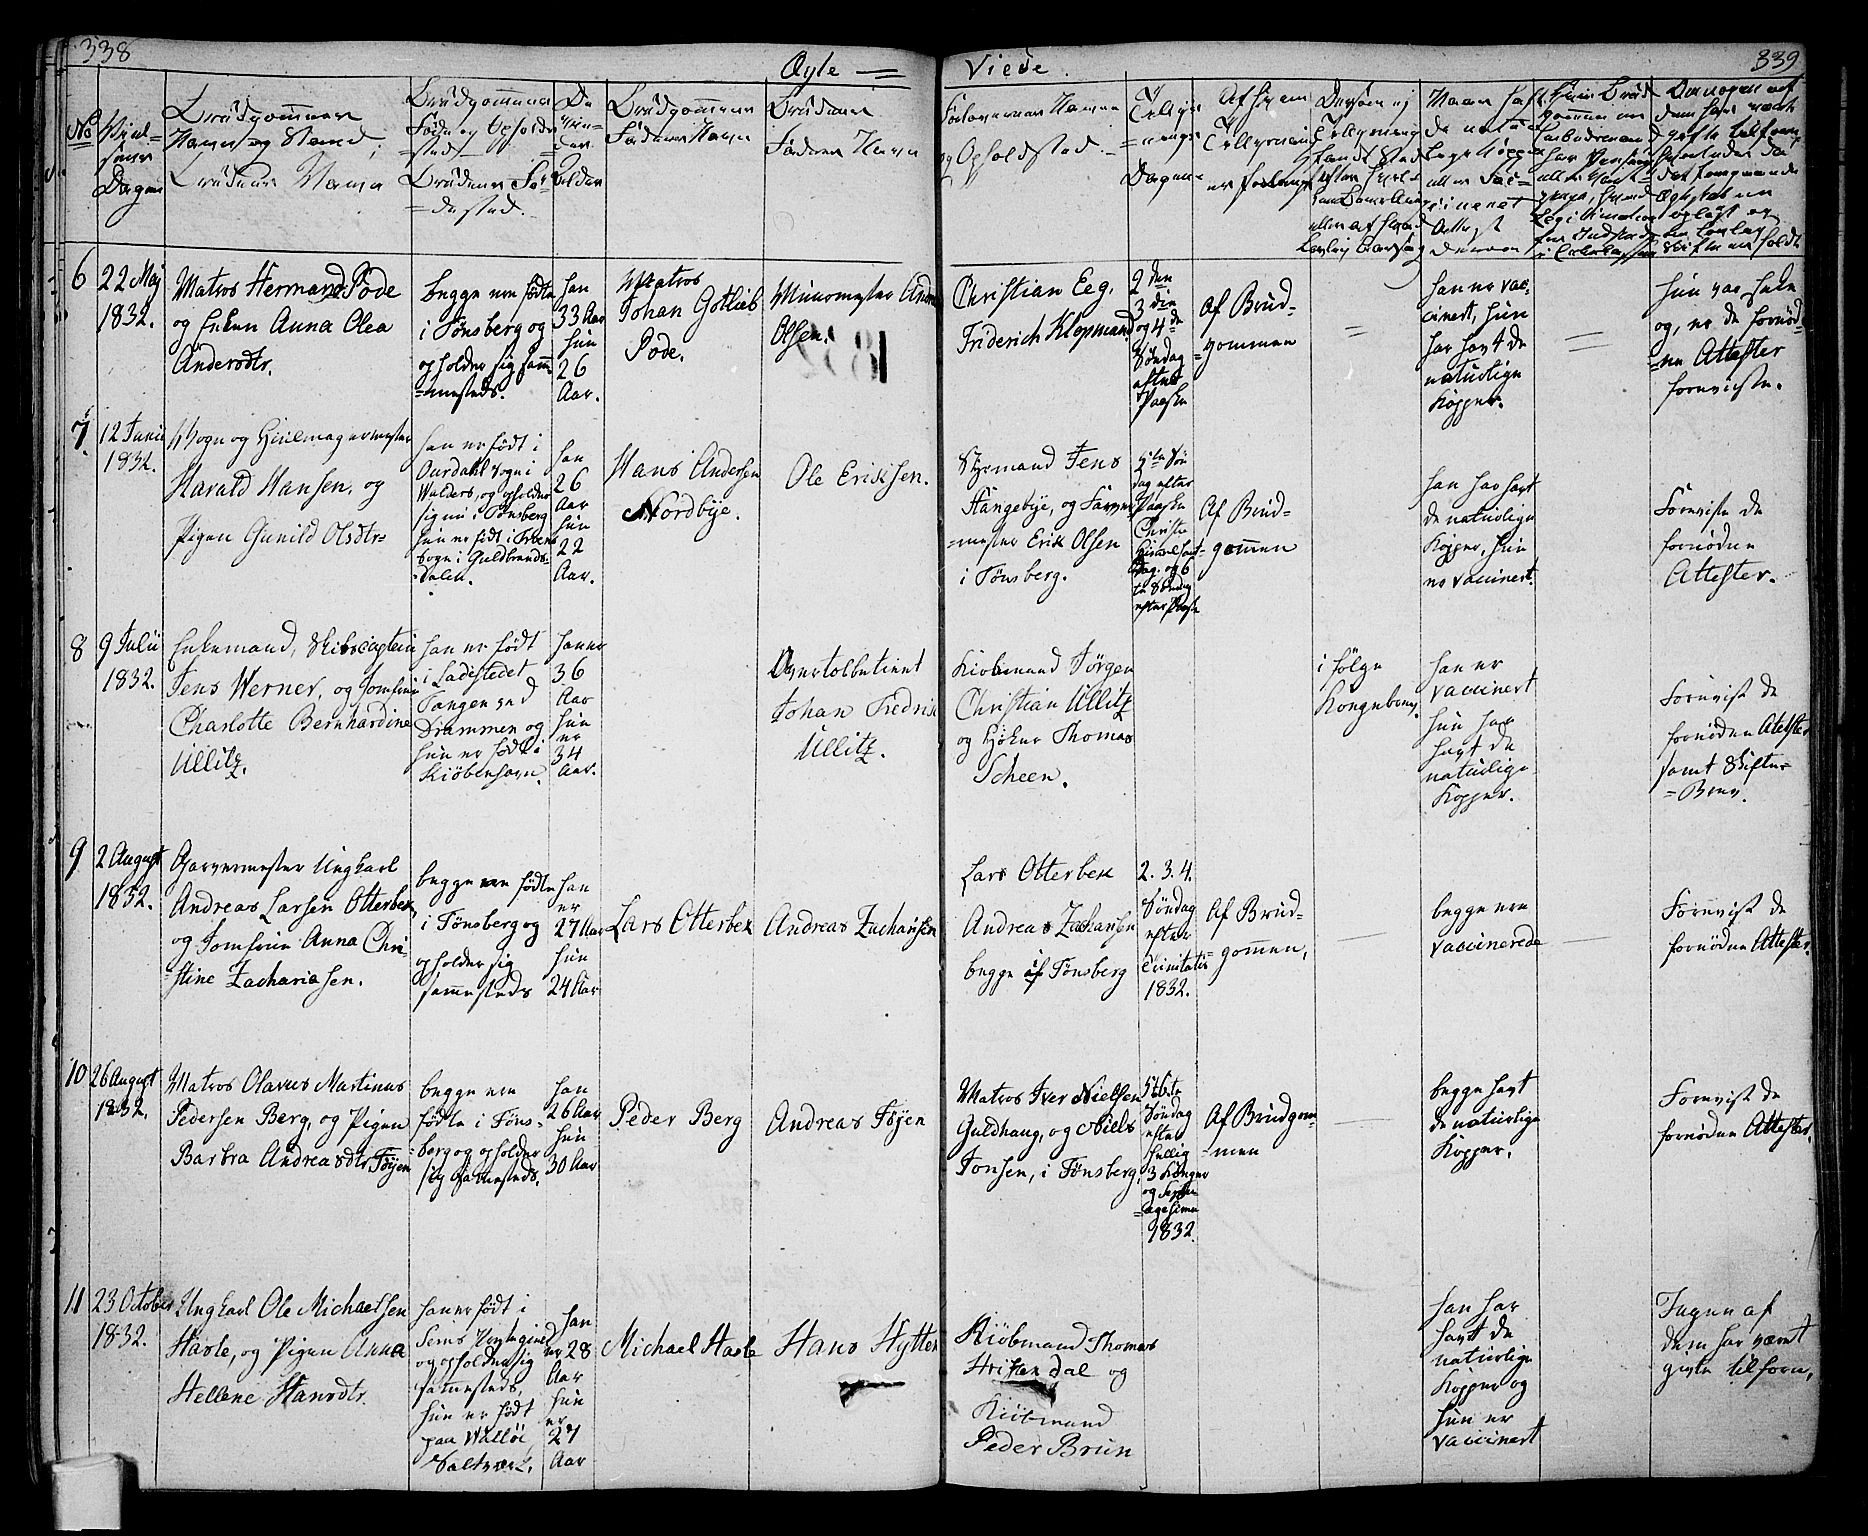 338
Ægte =
Viede.
339
No
Vielsens Dagen
Brudgommens
Navn og Stand,
Brudens Navn
Brudgommens
Føde og Opholds
=sted
Brudens Fø=
=dested.
Brudgommens
Faders Navn
Brudens
Faders Navn
Forlovernes Navne
og Opholdsted.
6
22 Maj
1832.
Matros Hermand Pode
og Enken Anna Olea
Andersdtr.
begge ere fødte
i Tønsberg og
opholder sig sam̄=
=mesteds.
han
33 Aar
hun
26
Aar.
Matros
Johan Gotlieb
Pode.
Muurmester Anders
Olsen.
Christian Eeg.
Friderich Klopmand
2den
3die
og 4de
Søndag
efter
Paaske
Af Brud=
=gommen
=
han er vac=
cinert, hun
har havt de
naturlige
Kopper.
=
hun var Enke
og, er de fornød=
=ne Attester
foreviste.
7.
12 Junii
1832.
Vogn og Hiulmagermester
Harald Hansen, og
Pigen Gunild Olsdtr=
han er født i
Ourdahl Sogn i
Walders, og opholder
sig nu i Tønsberg
hun er født i Froens
Sogn i Guldbrands=
=dalen.
han
26
Aar
hun
22
Aar.
Hans Andersen
Nordbye.
Ole Eriksen.
Styrmand Jens
Stangebye, og Farver
=mester Erik Olsen
i Tønsberg.
5te Søn
dag efter
Paaske
Christi
Himmelfart=
dag. og 6
te Søndag
efter Paaske
Af Brud=
gom̄en
han har havt
de naturlige
Kopper, hun
er vaccinert.
Foreviste de
fornødne
Attester.
8
9 Julii
1832.
Enkemand, Skibscaptein
Jens Werner, og Jomfrue
Charlotte Bernhardine
Ullitz.
han er født
i Ladestedet
Tangen ved
Drammen og
hun er født i
Kiøbenhavn.
han er
36
Aar
hun
er
34
Aar.
Overtolbetient
Johan Fredrik
Ullitz.
Kiøbmand Jørgen
Christian Ullitz
og Høker Thomas
Scheen.
i følge
Kongebrev.
han er
vaccinert
hun har
havt de
naturlige
Kopper.
Forevist de
fornødne Attester
samt Skifte=
=Brev.
9
2 August
1832.
Garvermester Ungkarl
Andreas Larsen Otterbek,
og Jomfrue Anna Chri=
=stine Zachariasen.
begge ere fødte
i Tønsberg og
opholder sig
sammesteds
han
er
27 Aar
hun
24 Aar
Lars Otterbek
Andreas Zachariasen
Lars Otterbek
Andreas Zachariasen
begge af Tønsberg
2. 3. 4.
Søndag
efter
Trinitatis
1832.
Af Brud=
=gommen,
begge ere
vaccinerede
Forevist de
fornødne Attester.
10
26 August
1832.
Matros Olavus Martinus
Pedersen Berg, og Pigen
Barbra Andreasdtr Føyen
begge ere
fødte i Tøns=
=berg og opholder
sig sammesteds.
han
26 Aar
hun
30 Aar
Peder Berg
Andreas Føyen
Matros Iver Nielsen
Guldhaug, og Niels
Jonsen, i Tønsberg.
5te
Søndag
efter
hellig
3 Konger
og Septu
=agesima
1832.
Af Brudgom
=men
begge havt
de naturlige
Kopper.
Forevist de
fornødne Attester.
11
23 October
1832.
Ungkarl Ole Michaelsen
Hasle, og Pigen Anna
Hellene Hansdtr.
han er født i
Sems Præstegield
og opholder sig
sammesteds,
hun er født
paa Walløe
Saltværk.
han
er 28
Aar
hun
er
27
Aar
Michael Hasle
Hans Hytten
Kiøbmand Thomas
og
Kiøbmand
Peder Brun
han har
havt de
naturlige
Kopper og
hun er
vaccinert
Ingen af
dem har været
givte tilforn,